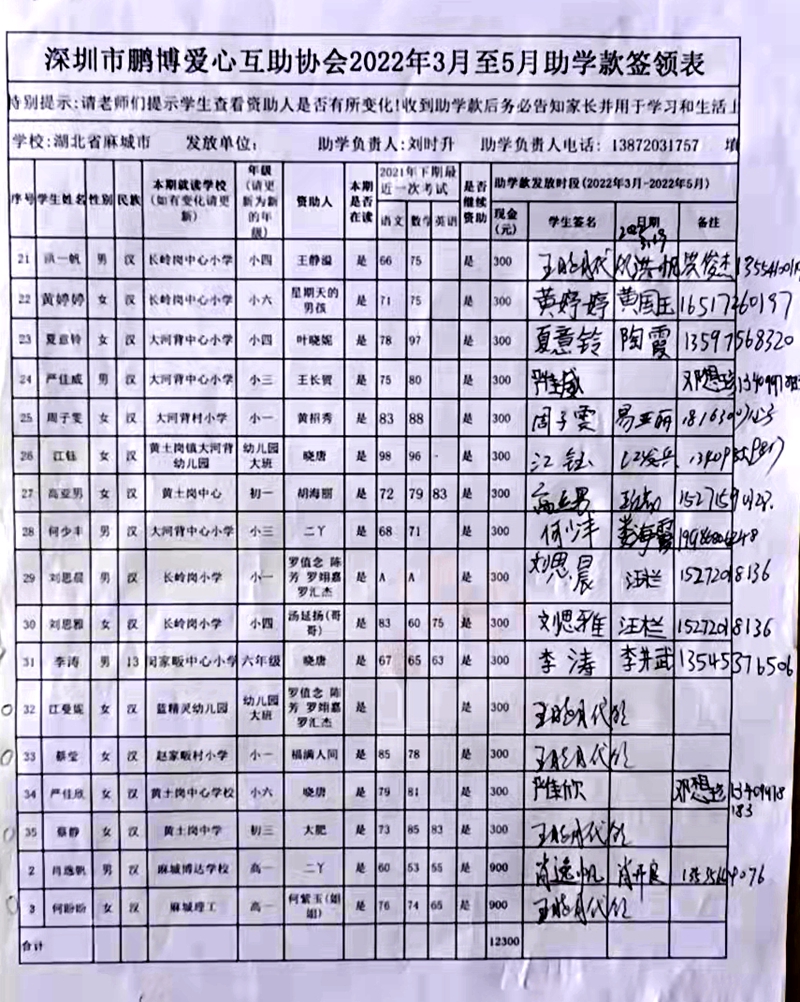 深圳市鹏博爱心互助协会2022年3月至5月助学款签领表
特别提示:请老师们提示学生查看资助人是否有所变化!收到助学款后务必告知家长并用于学习和生活上
学校:湖北省麻城市 发放单位: 助学负责人:刘时升 助学负责人电话: 13872031757 填
序号 学生姓名 性别 民族 本期就读学校(如有变化请更新) 年级(请更新为新的年级) 资助人 本期是否在读 2021年下期最近一次考试 语文 数学 英语 是否继续资助 助学款发放时段(2022年3月-2022年5月) 现金(元) 学生签名 日期 备注
21 一帆 男 汉 长岭岗中心小学 小四 王静溢 是 66 75 是 300
22 黄婷婷 女 汉 长岭岗中心小学 小六 星期天的男孩 是 71 75 是 300 黄婷婷 黄国玉 16517260197
23 夏意铃 女 汉 大河背中心小学 小四 叶晓妮 是 78 97 是 300 夏意铃 陶霞 13597568320
24 严佳威 男 汉 大河背中心小学 小三 王长贺 是 75 80 是 300 严佳威
25 周子雯 女 汉 大河背村小学 小一 黄招秀 是 83 88 是 300 周子雯 易亚丽
26 江钰 女 汉 黄土岗镇大河背幼儿园 幼儿园大班 晓唐 是 98 96 - 是 300 江钰
27 高亚男 女 汉 黄土岗中心 初一 胡海丽 是 72 79 83 是 300 高亚男
28 何少丰 男 汉 大河背中心小学 小三 二丫 是 68 71 是 300 何少丰
29 刘思晨 男 汉 长岭岗小学 小一 罗值念 陈芳 罗翊嘉 罗汇杰 是 A A 是 300 刘思晨 汪栏 15272018136
30 刘思雅 女 汉 长岭岗小学 小四 汤延扬(哥哥) 是 83 60 75 是 300 刘思雅 汪栏 15272018136
31 李涛 男 13 闵家畈中心小学 六年级 晓唐 是 67 65 63 是 300 李涛 李井武 13545376506
32 江曼妮 女 汉 蓝精灵幼儿园 幼儿园大班 罗值念 陈芳 罗翊嘉 罗汇杰 是 是 300
33 蔡莹 女 汉 赵家畈村小学 小一 福满人间 是 85 78 是 300
34 严佳欣 女 汉 黄土岗中心学校 小六 晓唐 是 79 81 是 300 严佳欣
35 蔡静 女 汉 黄土岗中学 初三 大肥 是 73 85 83 是 300
2 肖逸帆 男 汉 麻城博达学校 高一 二丫 是 60 53 55 是 900 肖逸帆
3 何盼盼 女 汉 麻城理工 高一 何紫玉(姐姐) 是 76 74 65 是 900
合计 12300